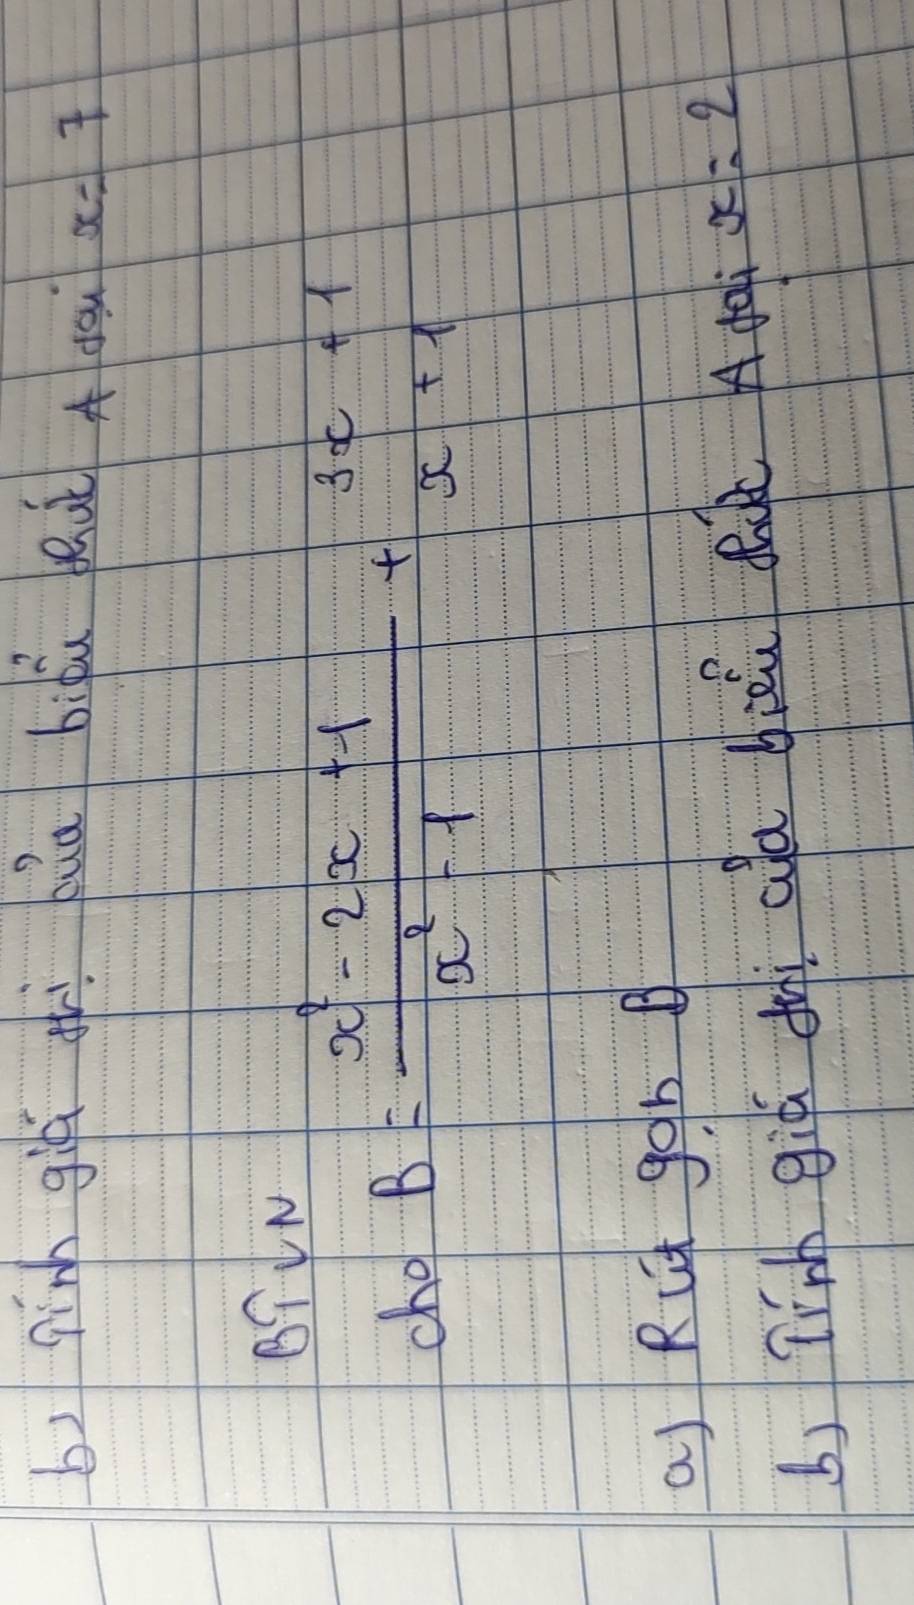 b) Tính giá trị của biểu thức A tại x = 7
BTVN
x² - 2x + 1 3x + 1
cho B = ―――――― +
x² - 1 x + 1
a) Rút gọn B
b) Tính giá trị của biểu thức A tại x = 2